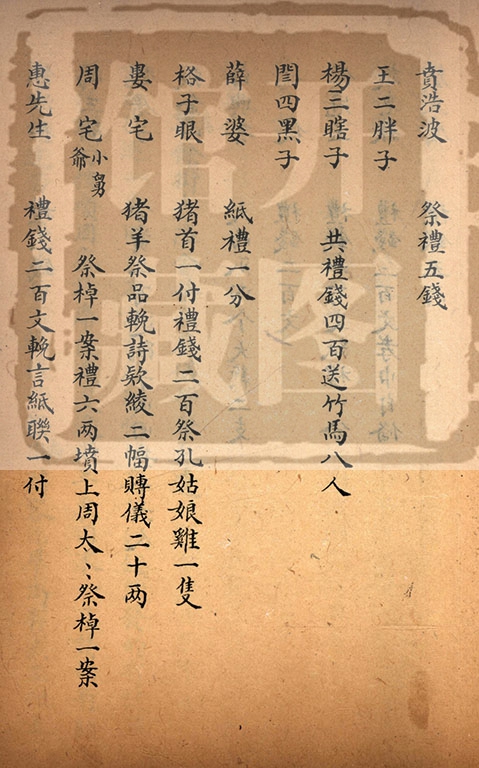 賁浩波 祭禮五錢
王二胖子
楊三瞎子 共禮錢四百送竹馬八人
閆四黑子
薛婆 紙禮一分
格子眼 猪首一付禮錢二百祭孔姑娘雞一隻
婁宅 猪羊祭品輓詩欵綾二幅賻儀二十两
周宅小舅爺 祭棹一案禮六两墳上周太〻祭棹一案
惠先生 禮錢二百文輓言紙聯一付